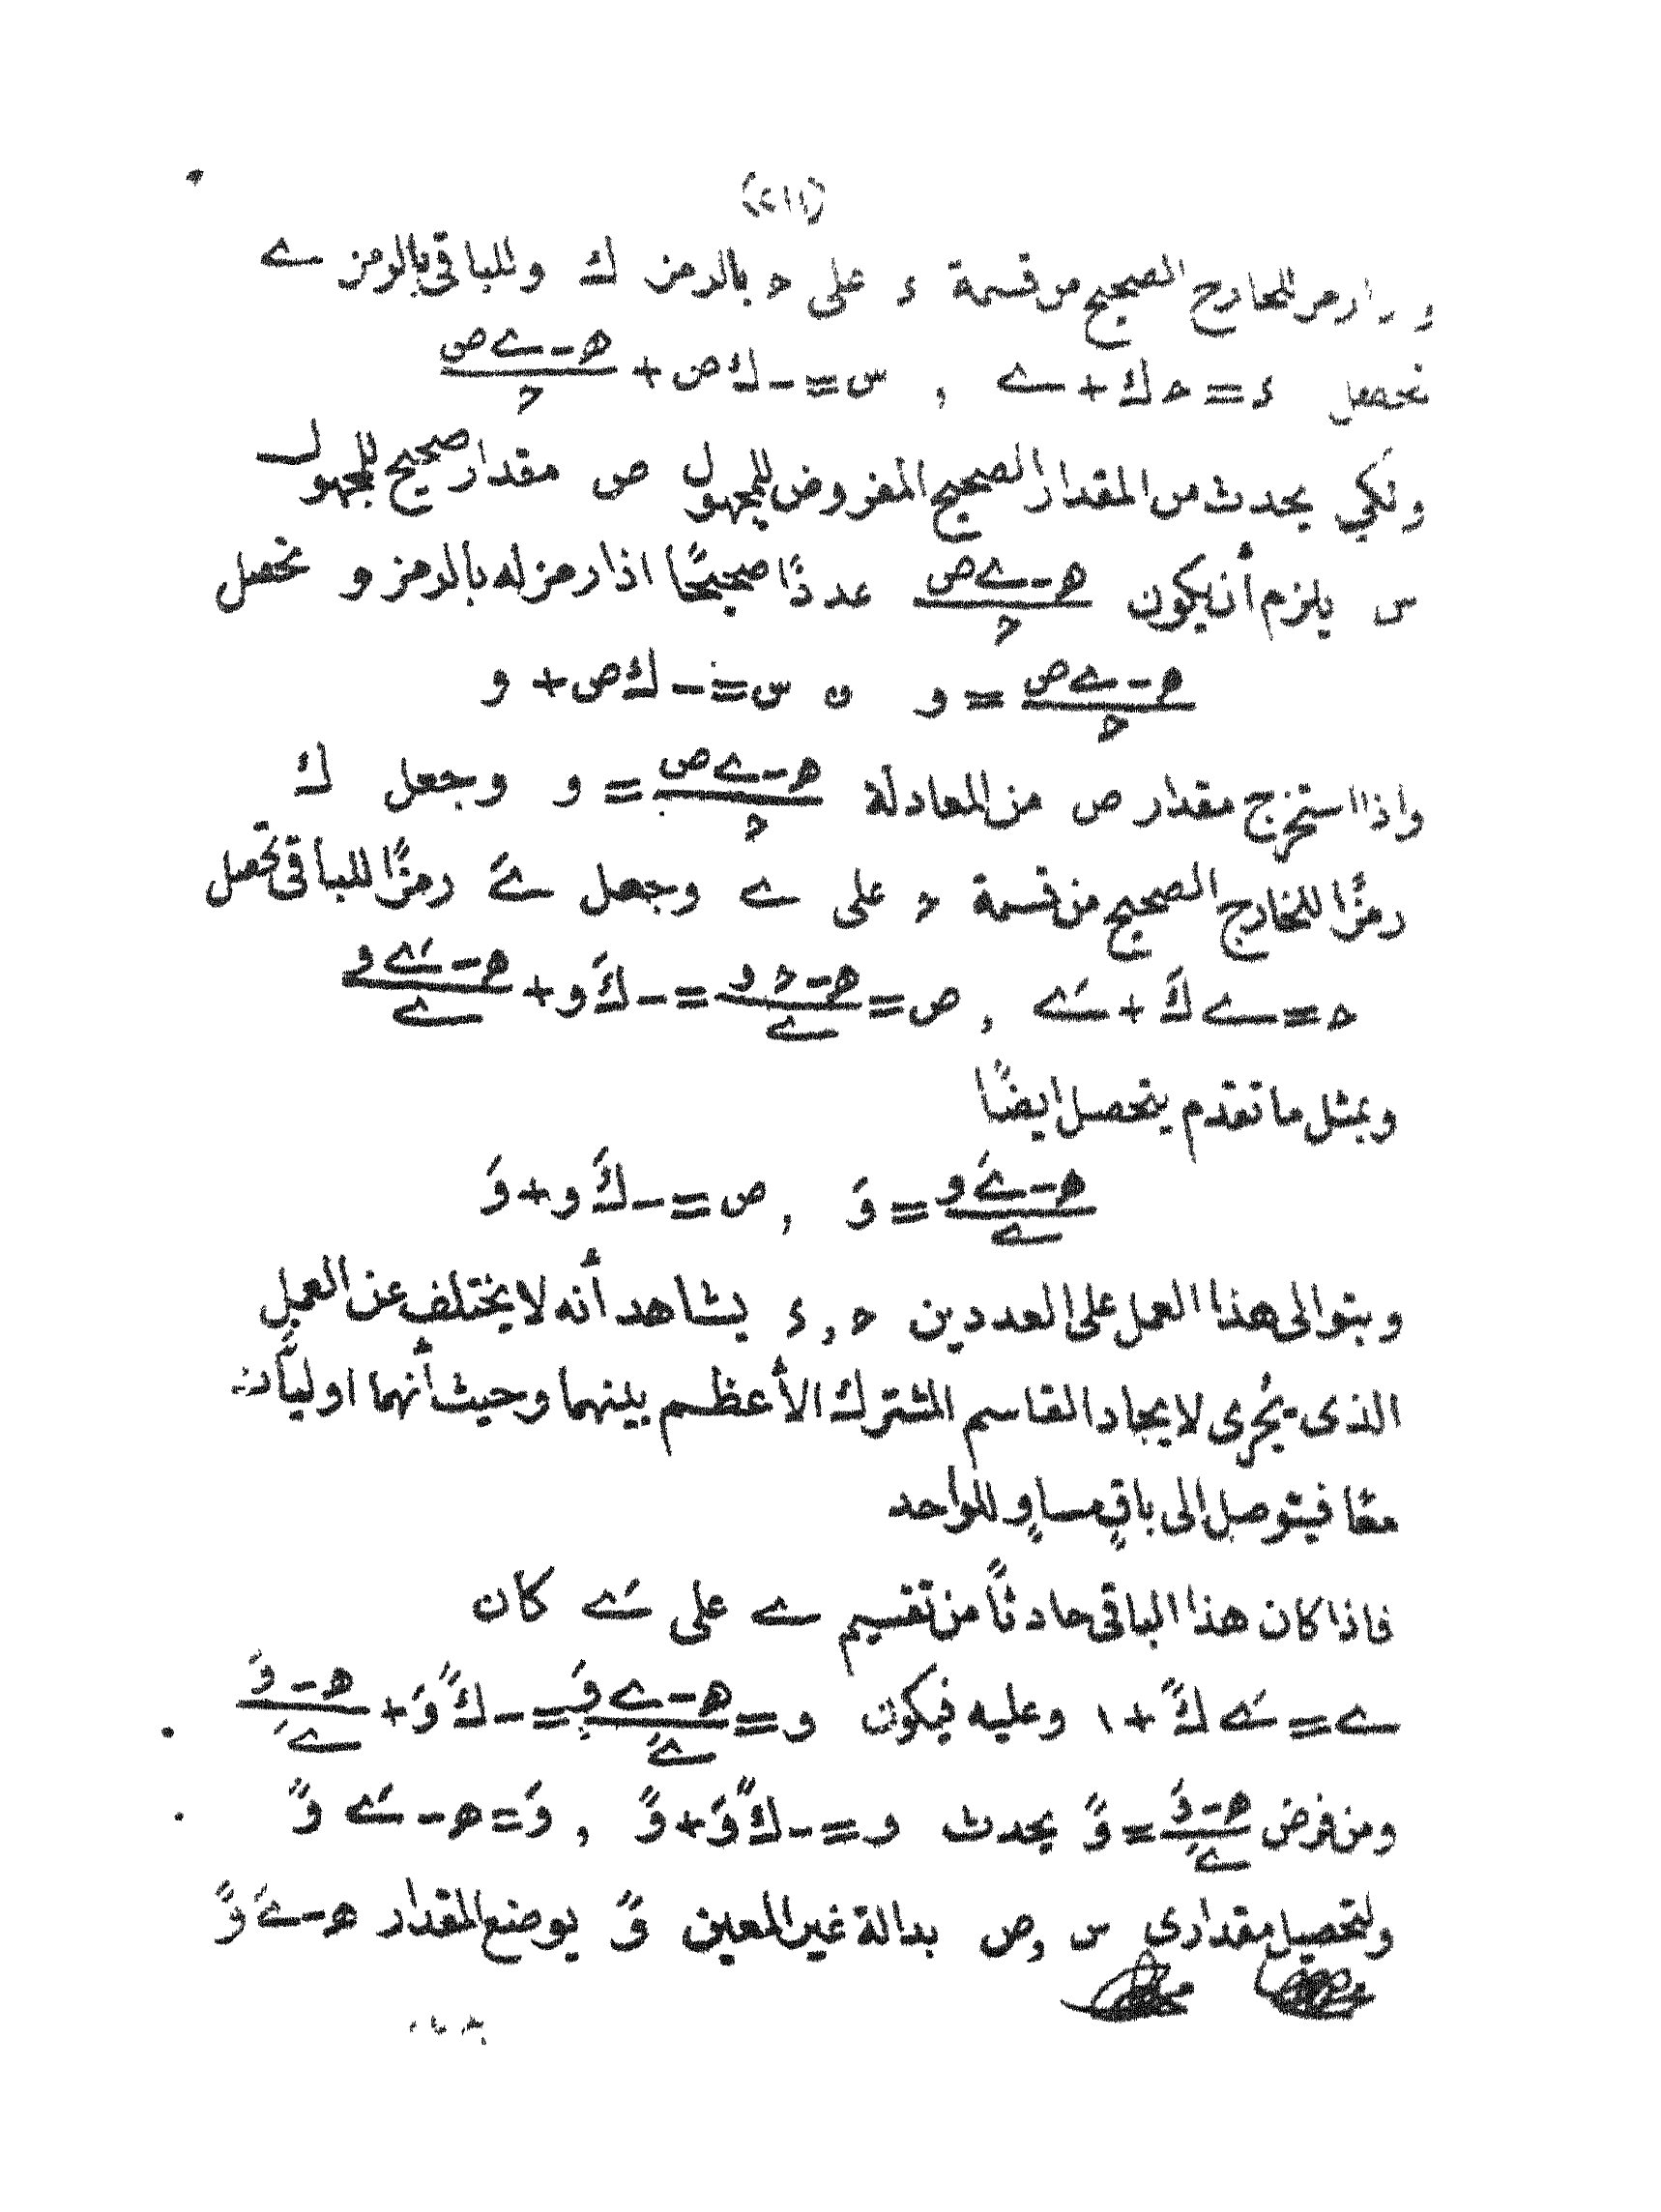 (٢١١)
واذا رمز للخارج الصحيح من قسمة ء على ح بالرمز ك وللباقى بالرمز ے
تحصل ء = ح ك + ے , س = - ك ص + (ه - ے ص)/ح
ولكي يحدث من المقدار الصحيح المفروض للمجهول ص مقدار صحيح للمجهول
س يلزم أن يكون (ه - ے ص)/ح عددًا صحيحًا اذا رمز له بالرمز و تحصل
(ه - ے ص)/ح = و ن س = - ك ص + و
واذا استخرج مقدار ص من المعادلة (ه - ے ص)/ح = و وجعل ك
رمزًا للخارج الصحيح من قسمة ح على ے وجعل ےَ رمزًا للباقى تحصل
ح = ے كَ + ےَ , ص = (ه - ح و)/ے = - كَ و + (ه - ےَ و)/ے
وبمثل ما تقدم يتحصل ايضًا
(ه - ےَ و)/ے = وَ , ص = - كَ و + وَ
وبتوالى هذا العمل على العددين ح , ء يشاهد أنه لا يختلف عن العمل
الذى يُجرى لايجاد القاسم المشترك الأعظم بينهما وحيث أنهما اوليان
معًا فيتوصل الى باقٍ مساوٍ للواحد
فاذا كان هذا الباقى حادثًا من تقسيم ے على ےَ كان
ے = ےَ كً + ١ وعليه فيكون و = (ه - ے وَ)/ےَ = - كً وَ + (ه - وَ)/ےَ
ومن فرض (ه - وَ)/ےَ = وً يحدث و = - كً وَ + وً , وَ = ه - ےَ وً
ولتحصيل مقدارى س , ص بدالة غير المعين وً يوضع المقدار ه - ےَ وً